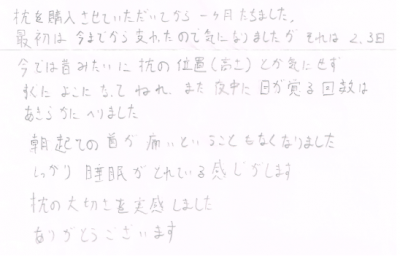 枕を購入させていただいてから一ヶ月たちました。
最初は今までから変わたので気になりましたが それは2,3日
今では昔みたいに枕の位置(高さ)とか気にせず
すぐによこになってねれ、また夜中に目が覚る回数は
あきらかにへりました
朝起ての首が痛いということもなくなりました
しっかり睡眠がとれている感じがします
枕の大切さを実感しました
ありがとうございます